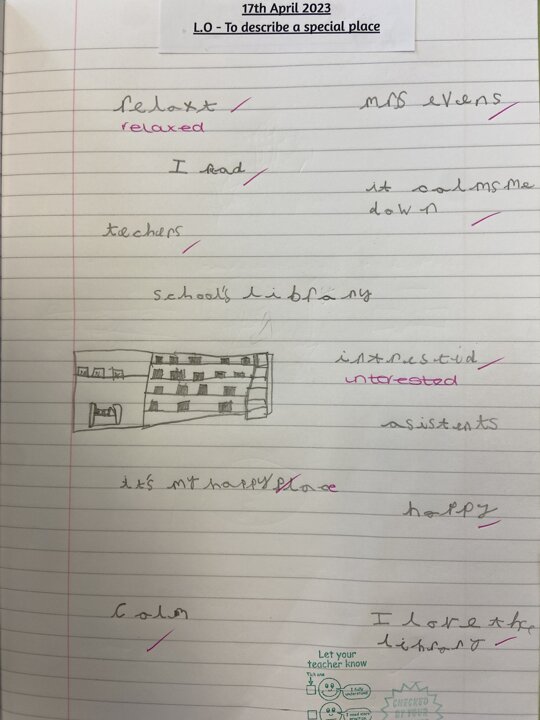 17th April 2023
L.O - To describe a special place
relaxt
mrs evens
relaxed
I read
it calms me
down
techers
school's library
intrestid
interested
asistents
it's my happy place
happy
calm
I love the
library
Let your
teacher know
Tick one
I fully
understand
I need more
CHECKED
BY YOUR